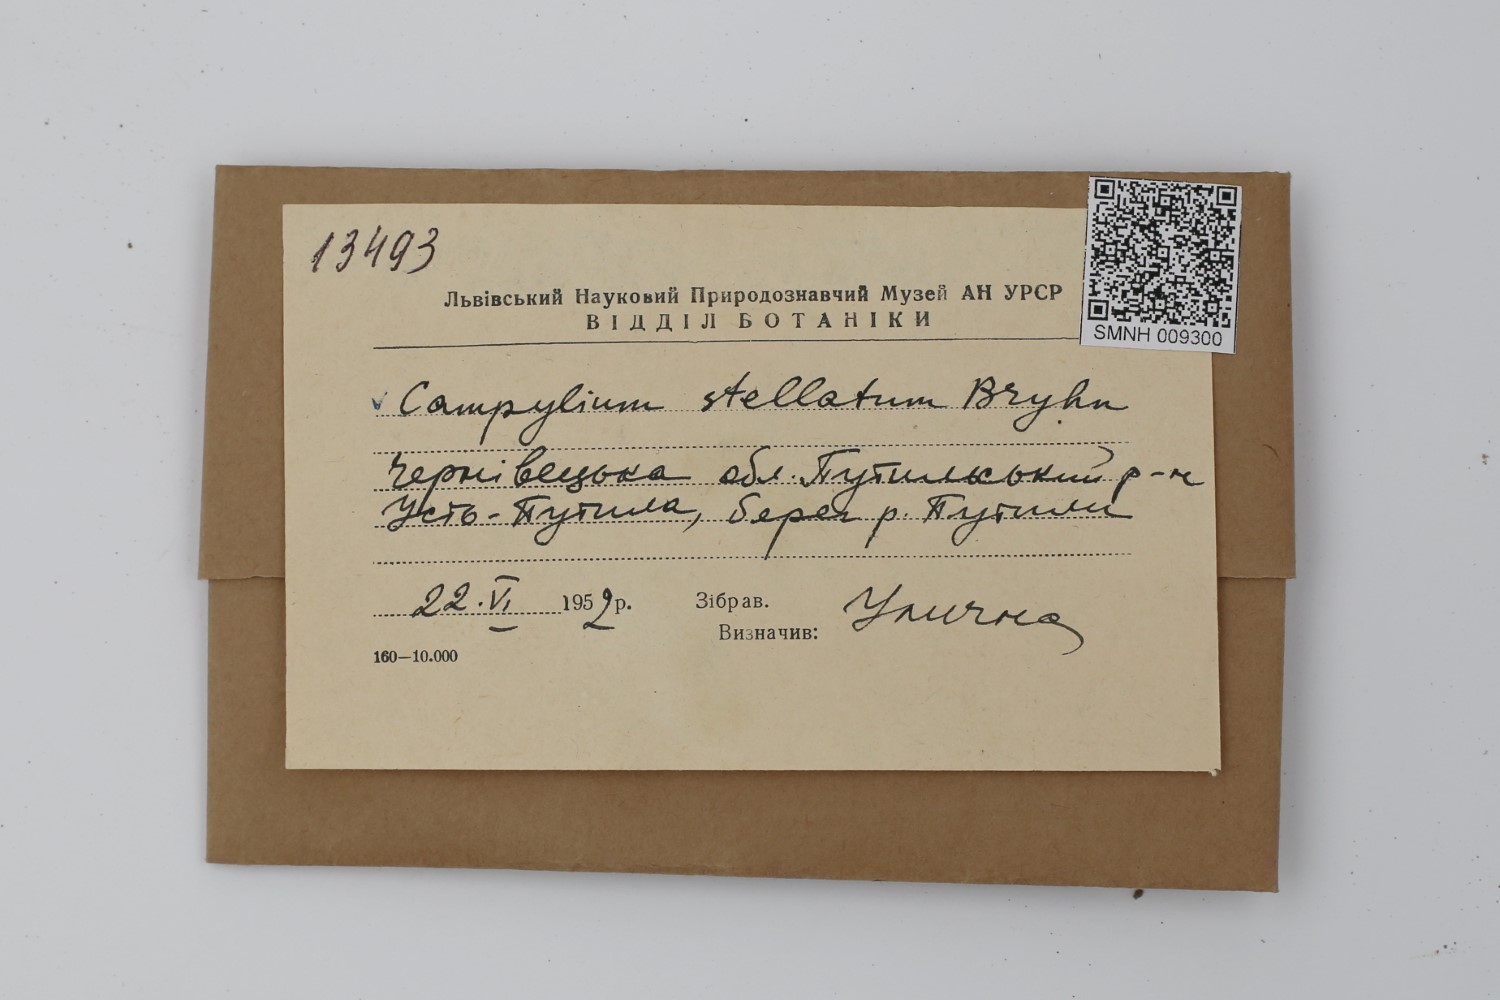 13493
Львівський Науковий Природознавчий Музей АН УРСР
ВІДДІЛ БОТАНІКИ
SMNH 009300
✓ Campylium stellatum Bryhn
Чернівецька обл. Путильський р-н
Усть-Путила, берег р. Путили
22.VI 1952р. Зібрав.
Визначив: Улична
160—10.000